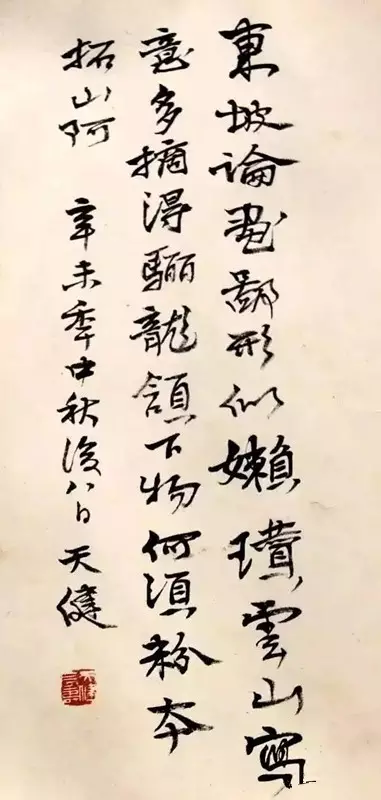 東坡論畫鄙形似嬾瓚雲山寫
意多摘得驪龍頷下物何須粉本
拓山阿 辛未秊中秋後八日 天健